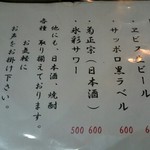 ・ヱビスビール
・サッポロ黒ラベル 600
・菊正宗(日本酒) 600
・氷彩サワー 500
他にも、日本酒、焼酎
各種 取り揃えております。
お気軽に
お声をお掛け下さい。